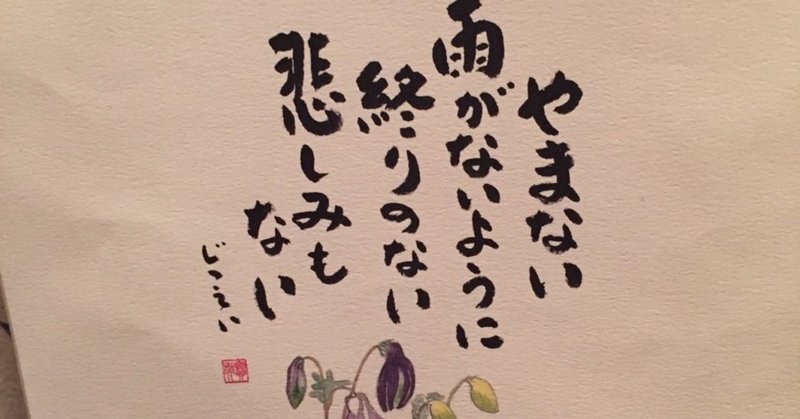 やまない
雨がないように
終りのない
悲しみも
ない
じつえい